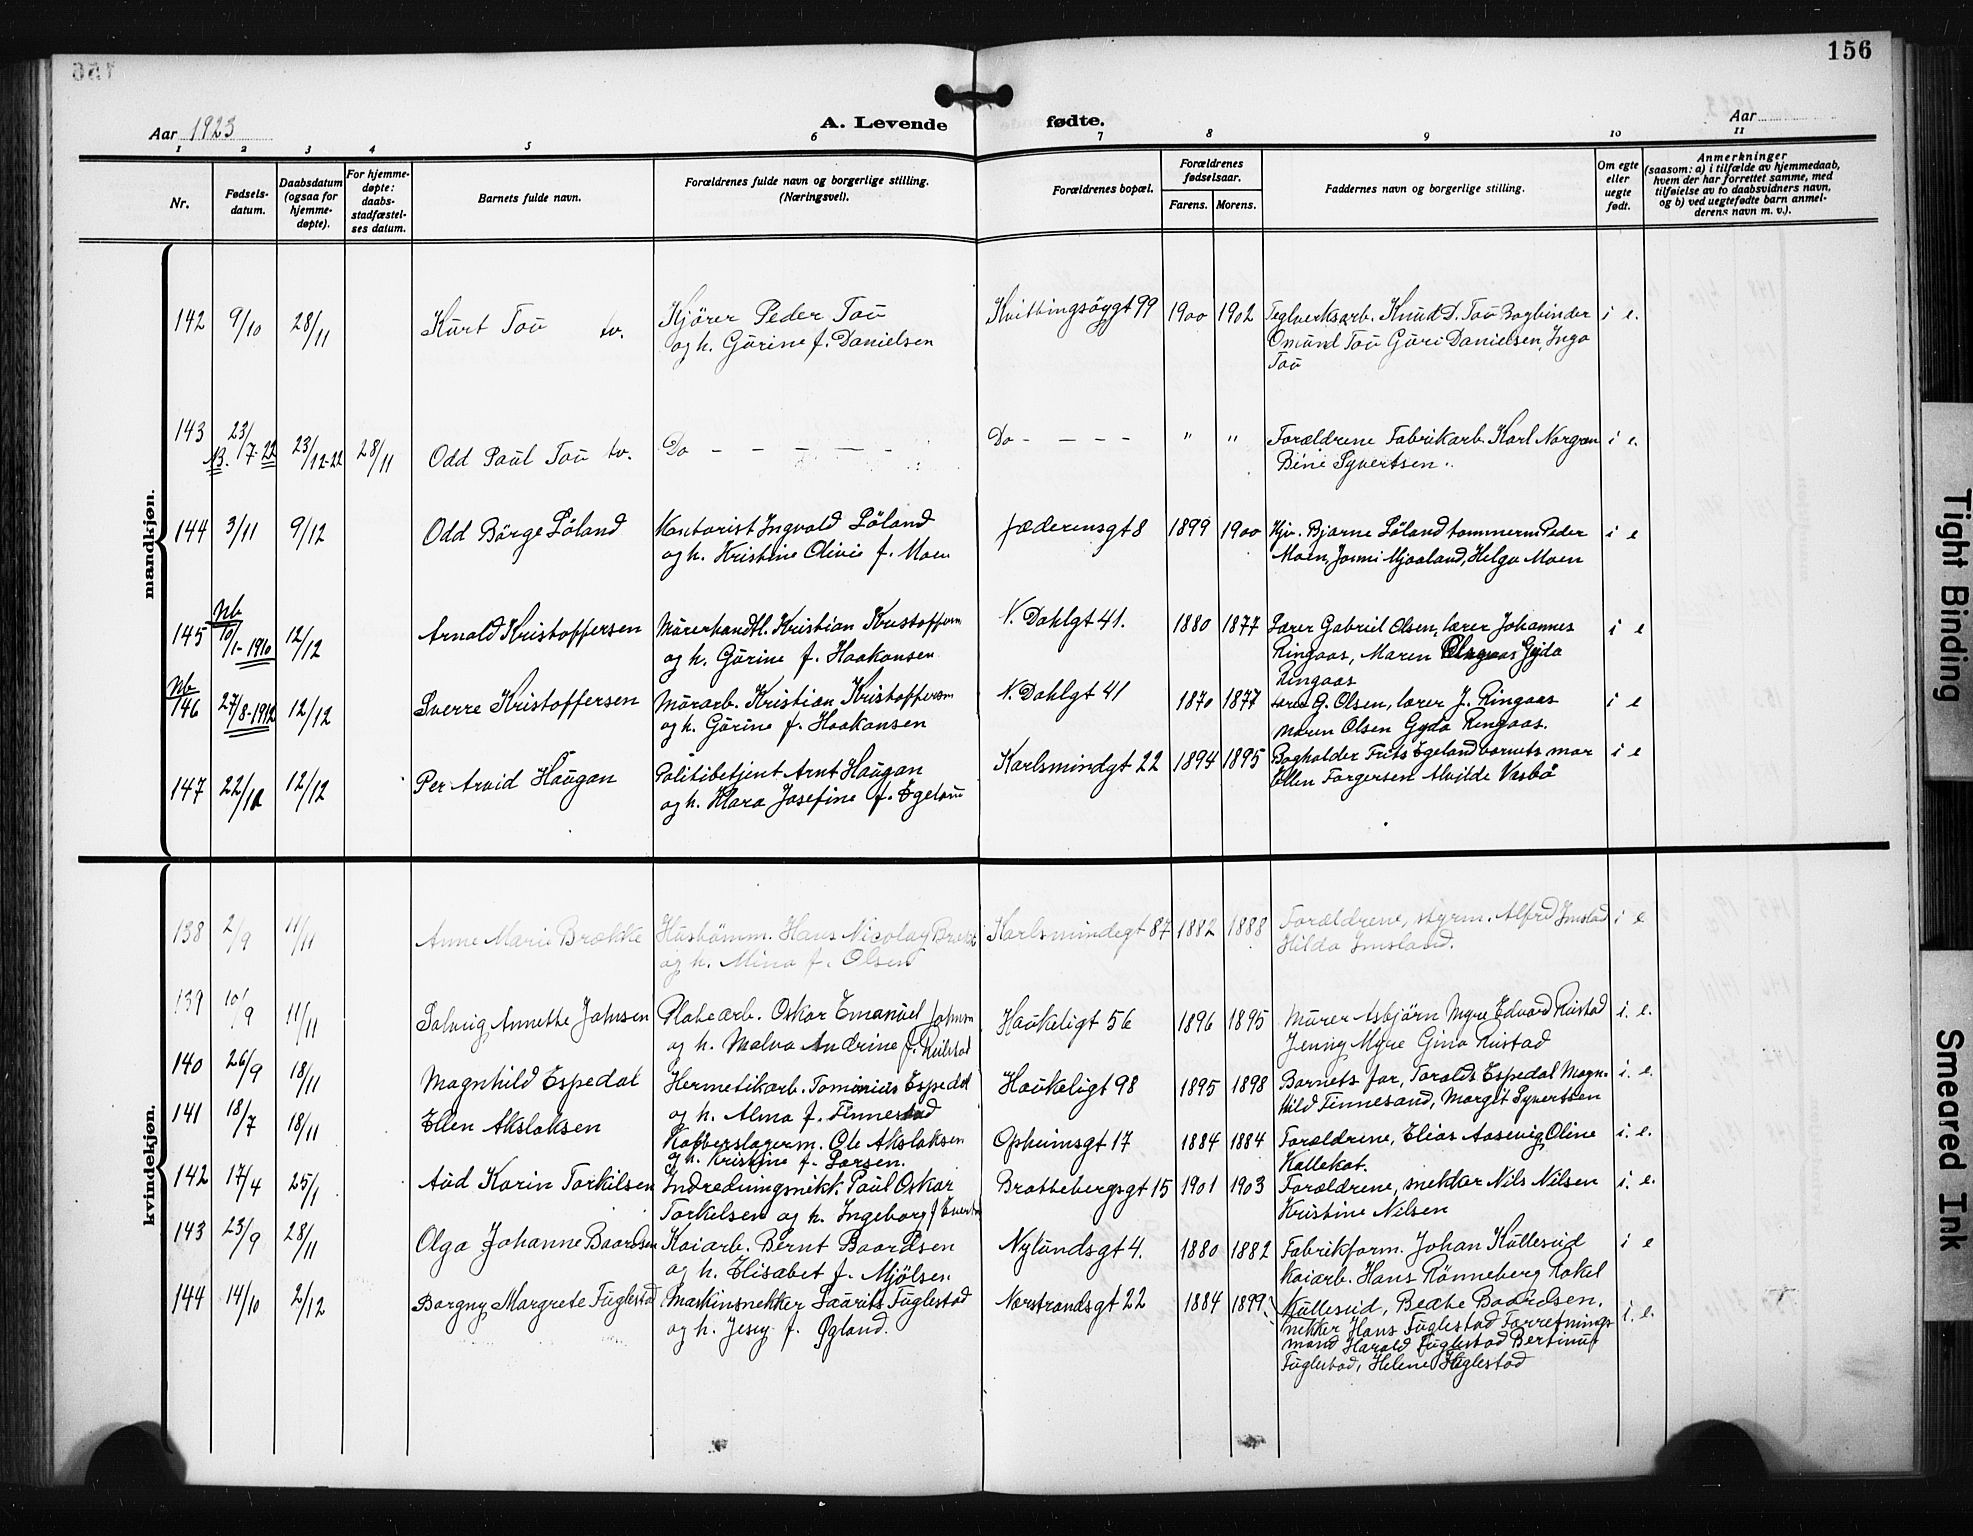 156
Aar 1923
A. Levende fødte.
Aar
1 2 3 4 5 6 7 8 9 10 11
Nr.
Fødsels-
datum.
Daabsdatum
(ogsaa for
hjemme-
døpte).
For hjemme-
døpte:
daabs-
stadfæstel-
ses datum.
Barnets fulde navn.
Forældrenes fulde navn og borgerlige stilling.
(Næringsvei).
Forældrenes bopæl.
Forældrenes
fødselsaar.
Farens. Morens.
Faddernes navn og borgerlige stilling.
Om egte
eller
uegte
født.
Anmerkninger
(saasom: a) i tilfælde av hjemmedaab,
hvem der har forrettet samme, med
tilføielse av to daabsvidners navn,
og b) ved uegtefødte barn anmel-
derens navn m. v.).
mandkjøn.
142 9/10 28/11 Kurt Tou tv. Kjörer Peder Tou Kvitbingsöygt 99 1900 1902 Teglverksarb. Knud D. Tou Bogbinder i e.
og h. Gurine f. Danielsen Omund Tou Guri Danielsen, Inga
Tou
143 23/7-22 23/12-22 28/11 Odd Paul Tou tv. Do - - - - - Do - - - - " " Forældrene Fabrikarb. Karl Norgren i e.
NB. Bine Syvertsen.
144 3/11 9/12 Odd Börge Löland Kontorist Ingvald Löland Jæderensgt 8 1899 1900 Kjv. Bjarne Löland tømmerm Peder i e
og h. Kristine Olivie f. Moen Moen, Jonni Mjaaland, Helga Moen
Nb
145 10/1-1910 12/12 Arnold Kristoffersen Murerhandtl. Kristian Kristoffersen N. Dahlgt 41. 1880 1877 Lærer Gabriel Olsen, lærer Johannes i e
og h. Gurine f. Haakonsen Ringaas, Maren Olsen Gyda
Ringaas
Nb
146 27/8-1912 12/12 Sverre Kristoffersen Murarb. Kristian Kristoffersen N. Dahlgt 41 1870 1877 Lærer G. Olsen, lærer J. Ringaas i e
og h. Gurine f. Haakonsen Maren Olsen Gyda Ringaas.
147 22/10 12/12 Per Arvid Haugan Politibetjent Arnt Haugan Karlsmindgt 22 1894 1895 Bogholder Frits Egeland barnets mor i e
og h. Klara Josefine f. Egeland Ellen Torgersen Alvilde Vasbö
kvindekjøn.
138 2/9 11/11 Anne Marie Brække Husbömm. Hans Nicolay Brække Karlsmindegt 87 1882 1888 Forældrene, styrm. Alfred Imsland i e
og h. Mina f. Olsen Hilda Imsland.
139 10/9 11/11 Solveig Annette Johnsen Platearb. Oskar Emanuel Johnsen Haukeligt 56 1896 1895 Murer Asbjörn Myre Edvard Rustad i. e.
og h. Malva Andrine f. Rustad Jenny Myre Gina Rustad
140 26/9 18/11 Magnhild Espedal Hermetikarb. Tominius Espedal Haukeligt 98 1895 1898 Barnets far, Toralds Espedal Magn- i. e.
og h. Alma f. Finnesand hild Finnesand, Margit Syvertsen
141 18/7 18/11 Ellen Akslaksen Kobberslagerm. Ole Akslaksen Opheimsgt 17 1884 1884 Forældrene, Elias Aasevig Oline i. e.
og h. Kristine f. Larsen. Kallekat.
142 17/4 25/1 Aud Karin Torkilsen Indredningsnikk. Paul Oskar Brattebergsgt 15 1901 1903 Forældrene, snekker Nils Nilsen i. e.
Torkelsen og h. Ingeborg f. Kristine Nilsen
143 23/9 28/11 Olga Johanne Baardsen Kaiarb. Bernt Baardsen Nylundsgt 4. 1880 1882 Fabrikform. Johan Kullesud i e
og h. Elisabet f. Mjölsen Kaiarb. Hans Rönneberg Rakel
144 14/10 2/12 Borgny Margrete Fuglestad Maskinsnekker Laurits Fuglestad Norstrandsgt 22 1884 1899 Kullesud, Beate Baardsen. i. e.
og h. Jesey f. Øgland. Snekker Hans Fuglestad Forretnings-
mand Harald Fuglestad Bertinus
Fuglestad, Helene Fuglestad
Tight Binding
Smeared Ink